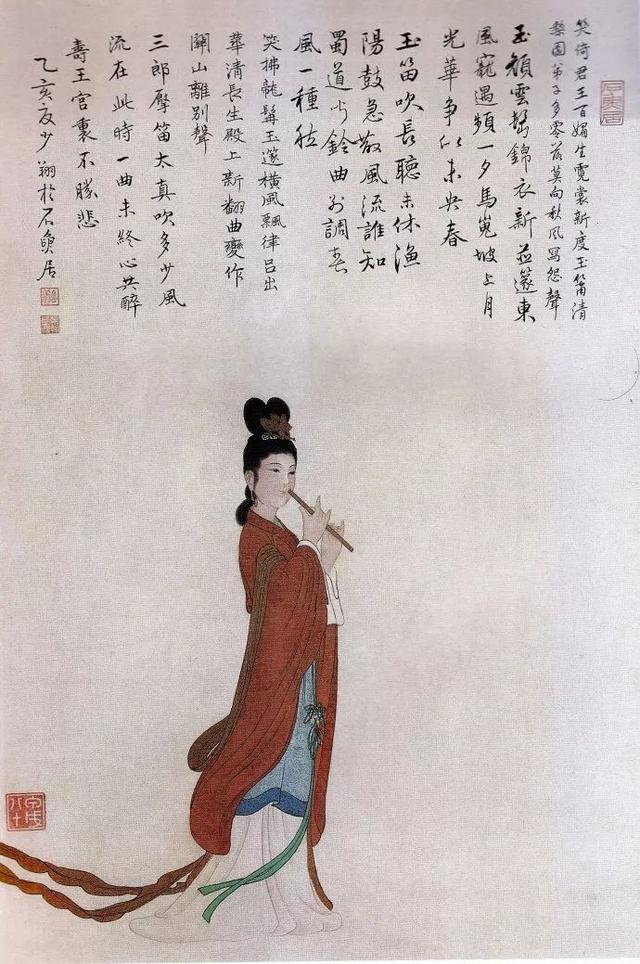 笑倚君王百媚生霓裳新度玉笛清
梨園弟子多零落莫向秋風寫怨聲
玉顏雲鬌錦衣新並篴東
風寵遇頻一夕馬嵬坡上月
光華爭似未央春
玉笛吹長聽未休漁
陽鼓急散風流誰知
蜀道鈴曲別調春
風一種愁
笑拂龍髯玉篴橫風飄律呂出
華清長生殿上新翻曲變作
關山離別聲
三郎擪笛太真吹多少風
流在此時一曲未終心共醉
壽王宮裏不勝悲
乙亥夏少翔於石魚居
八十